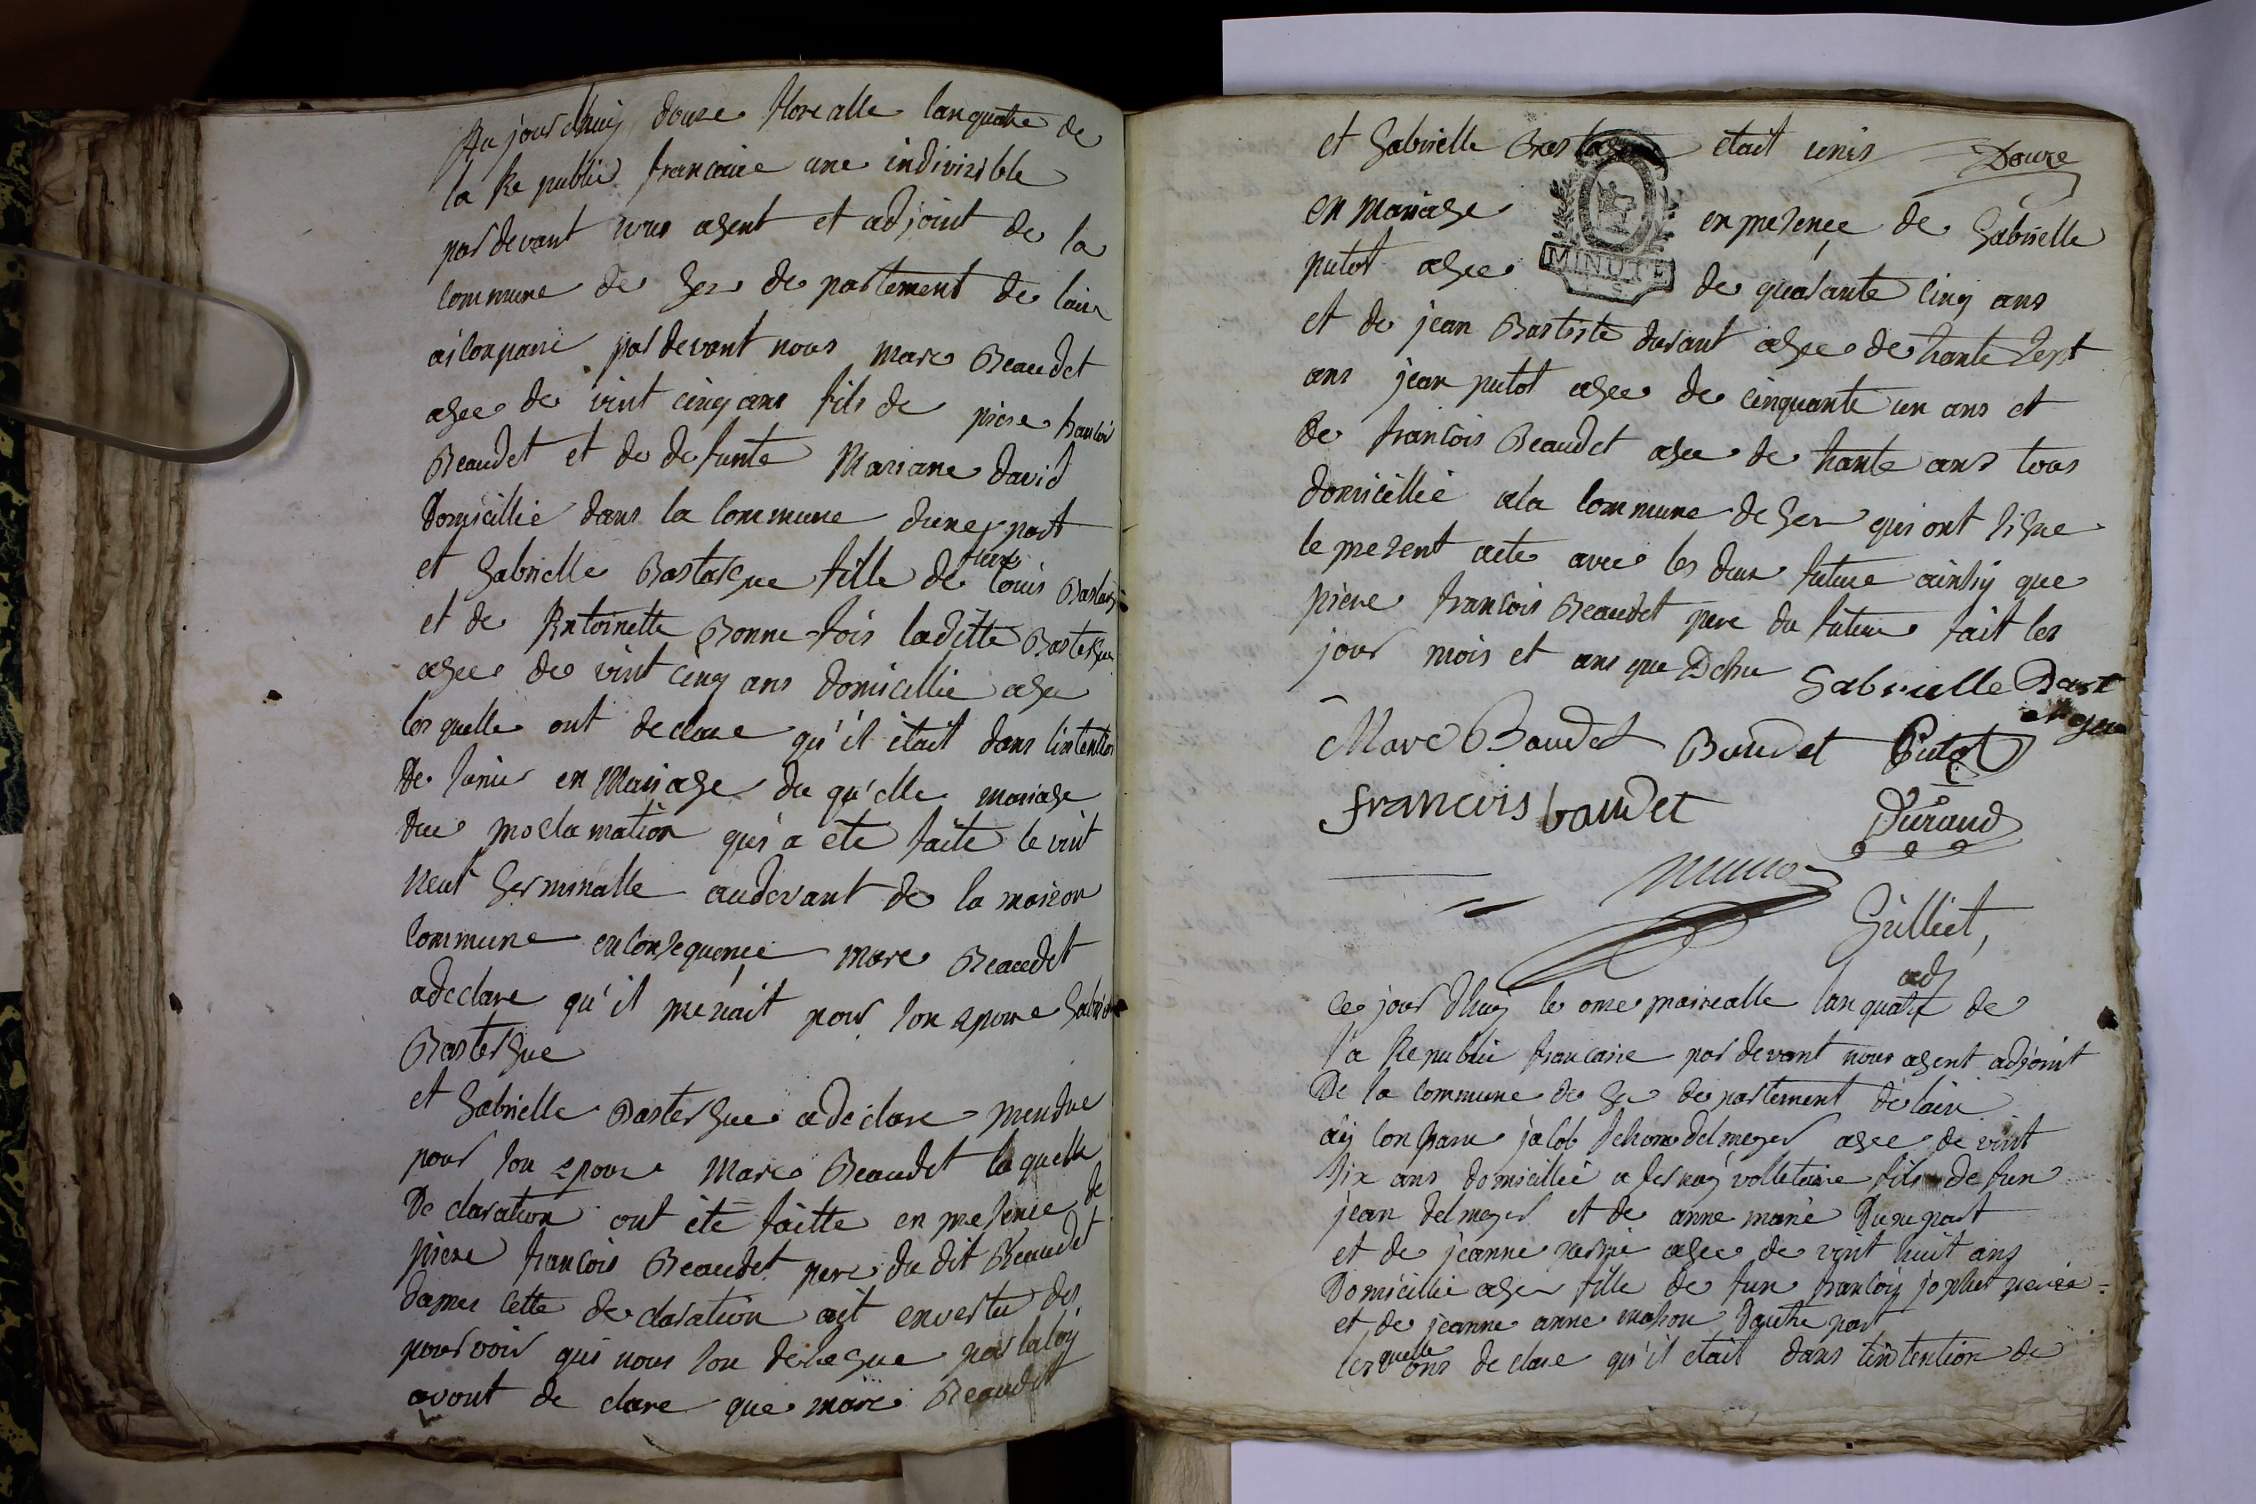 Au jourdhuy douze florealle lanquatre de
la Republic francaise une indivisible
par devant nous agent et adjoint de la
commune de Gex departement de lain
ai conparu par devant nous marc Beaudet
agee de vint cinq ans fils de piere francois
Beaudet et de defunte Mariane david
Domicillie dans la commune dune part
et Gabrielle Bastergue fille de Louis
et de Antoinette Bonnefois laditte Bastergue
agee de vint cinq ans domicillie a Gex
lesquelle ont declare qu'il était dans lintention
De sunir en Mariage du qu'elle mariage
due proclamation qui a ete faite le vint
neuf Germinalle audevant de la maison
commune en consequence marc Beaudet
a declare qu'il prenait pour son epouse Gabrielle
Bastergue
et Gabrielle Bastergue a declare prendre
pour son epoux Marc Beaudet laquelle
Declaration ont été faitte en presence de
piere francois Beaudet pere du dit Beaudet
dapres cette declaration ait en vertu des
pouvoir qui nous son delegue par la loy
avont declare que marc Beaudet
et Gabrielle etait unis Douze
en mariage en presence de Gabrielle
MINUTE
putot agee de quarante cinq ans
et de jean Bastiste durant agee de trante sept
ans jean putot agee de cinquante un ans et
De francois Beaudet agee de trante ans tous
domicillié a la commune de Gex qui ont signe
le present acte avec les deux future ainsy que
piere francois Beaudet pere du future fait les
jour mois et ans que Dessu Gabrielle Bast
ergue
Marc Baudet Baudet Putot
francois baudet Durand
Gilliet,
adj
Ce jourdhuy le onze prairealle lanquatre de
la Republic francaise par devant nous agent adjoint
De la commune de Gex departement de lain
ay conparu jacob delmeyer agee de vint
six ans domicillié a fernay volletaire fils de fun
jean delmeyer et de anne marie Dune part
et de jeanne agee de vint huit ans
Domicillié a Gex fille de fun francois
et de jeanne anne Dautre part
lesquelle ons declare qu'il etait dans lintention de